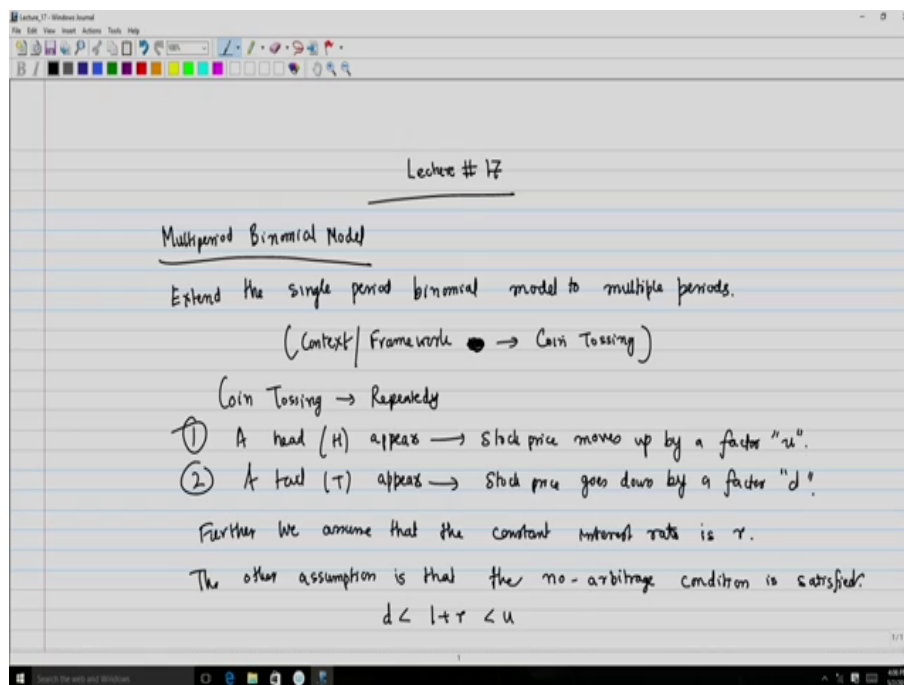 Lecture_17 - Windows Journal
File Edit View Insert Actions Tools Help
B I
Lecture # 17
Multiperiod Binomial Model
Extend the single period binomial model to multiple periods.
(Context/ Framework → Coin Tossing)
Coin Tossing → Repeatedly
① A head (H) appears → Stock price moves up by a factor "u".
② A tail (T) appears → Stock price goes down by a factor "d".
Further we assume that the constant interest rate is r.
The other assumption is that the no-arbitrage condition is satisfied.
d < 1+r < u
1/1
Search the web and Windows